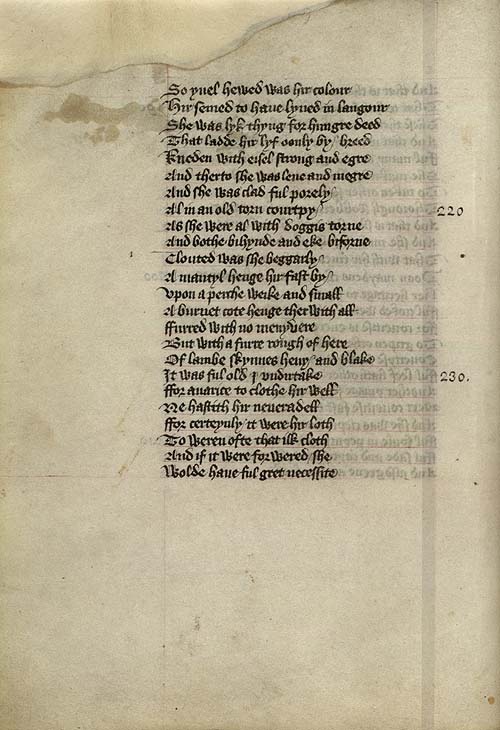 So yuel hewed was hir colour
Hir semed to haue lyued in langour
She was lyk thyng for hungre deed
That ladde hir lyf oonly by breed
Kneden with eisel strong and egre
And therto she was lene and megre
And she was clad ful porely
Al in an old torn courtpy
220
As she were al with doggis torne
And bothe bihynde and eke biforne
Clouted was she beggarly
A mantyl henge hir fast by
Vpon a perche weike and small
A burnet cote henge ther with all
ffurred with no menyuere
But with a furre rough of here
Of lambe skynnes heuy and blake
It was ful old I vndirtake
230.
ffor auarice to clothe hir well
Ne hastith hir neueradell
ffor certeynly it were hir loth
To weren ofte that ilk cloth
And if it were forwered she
Wolde haue ful gret necessite